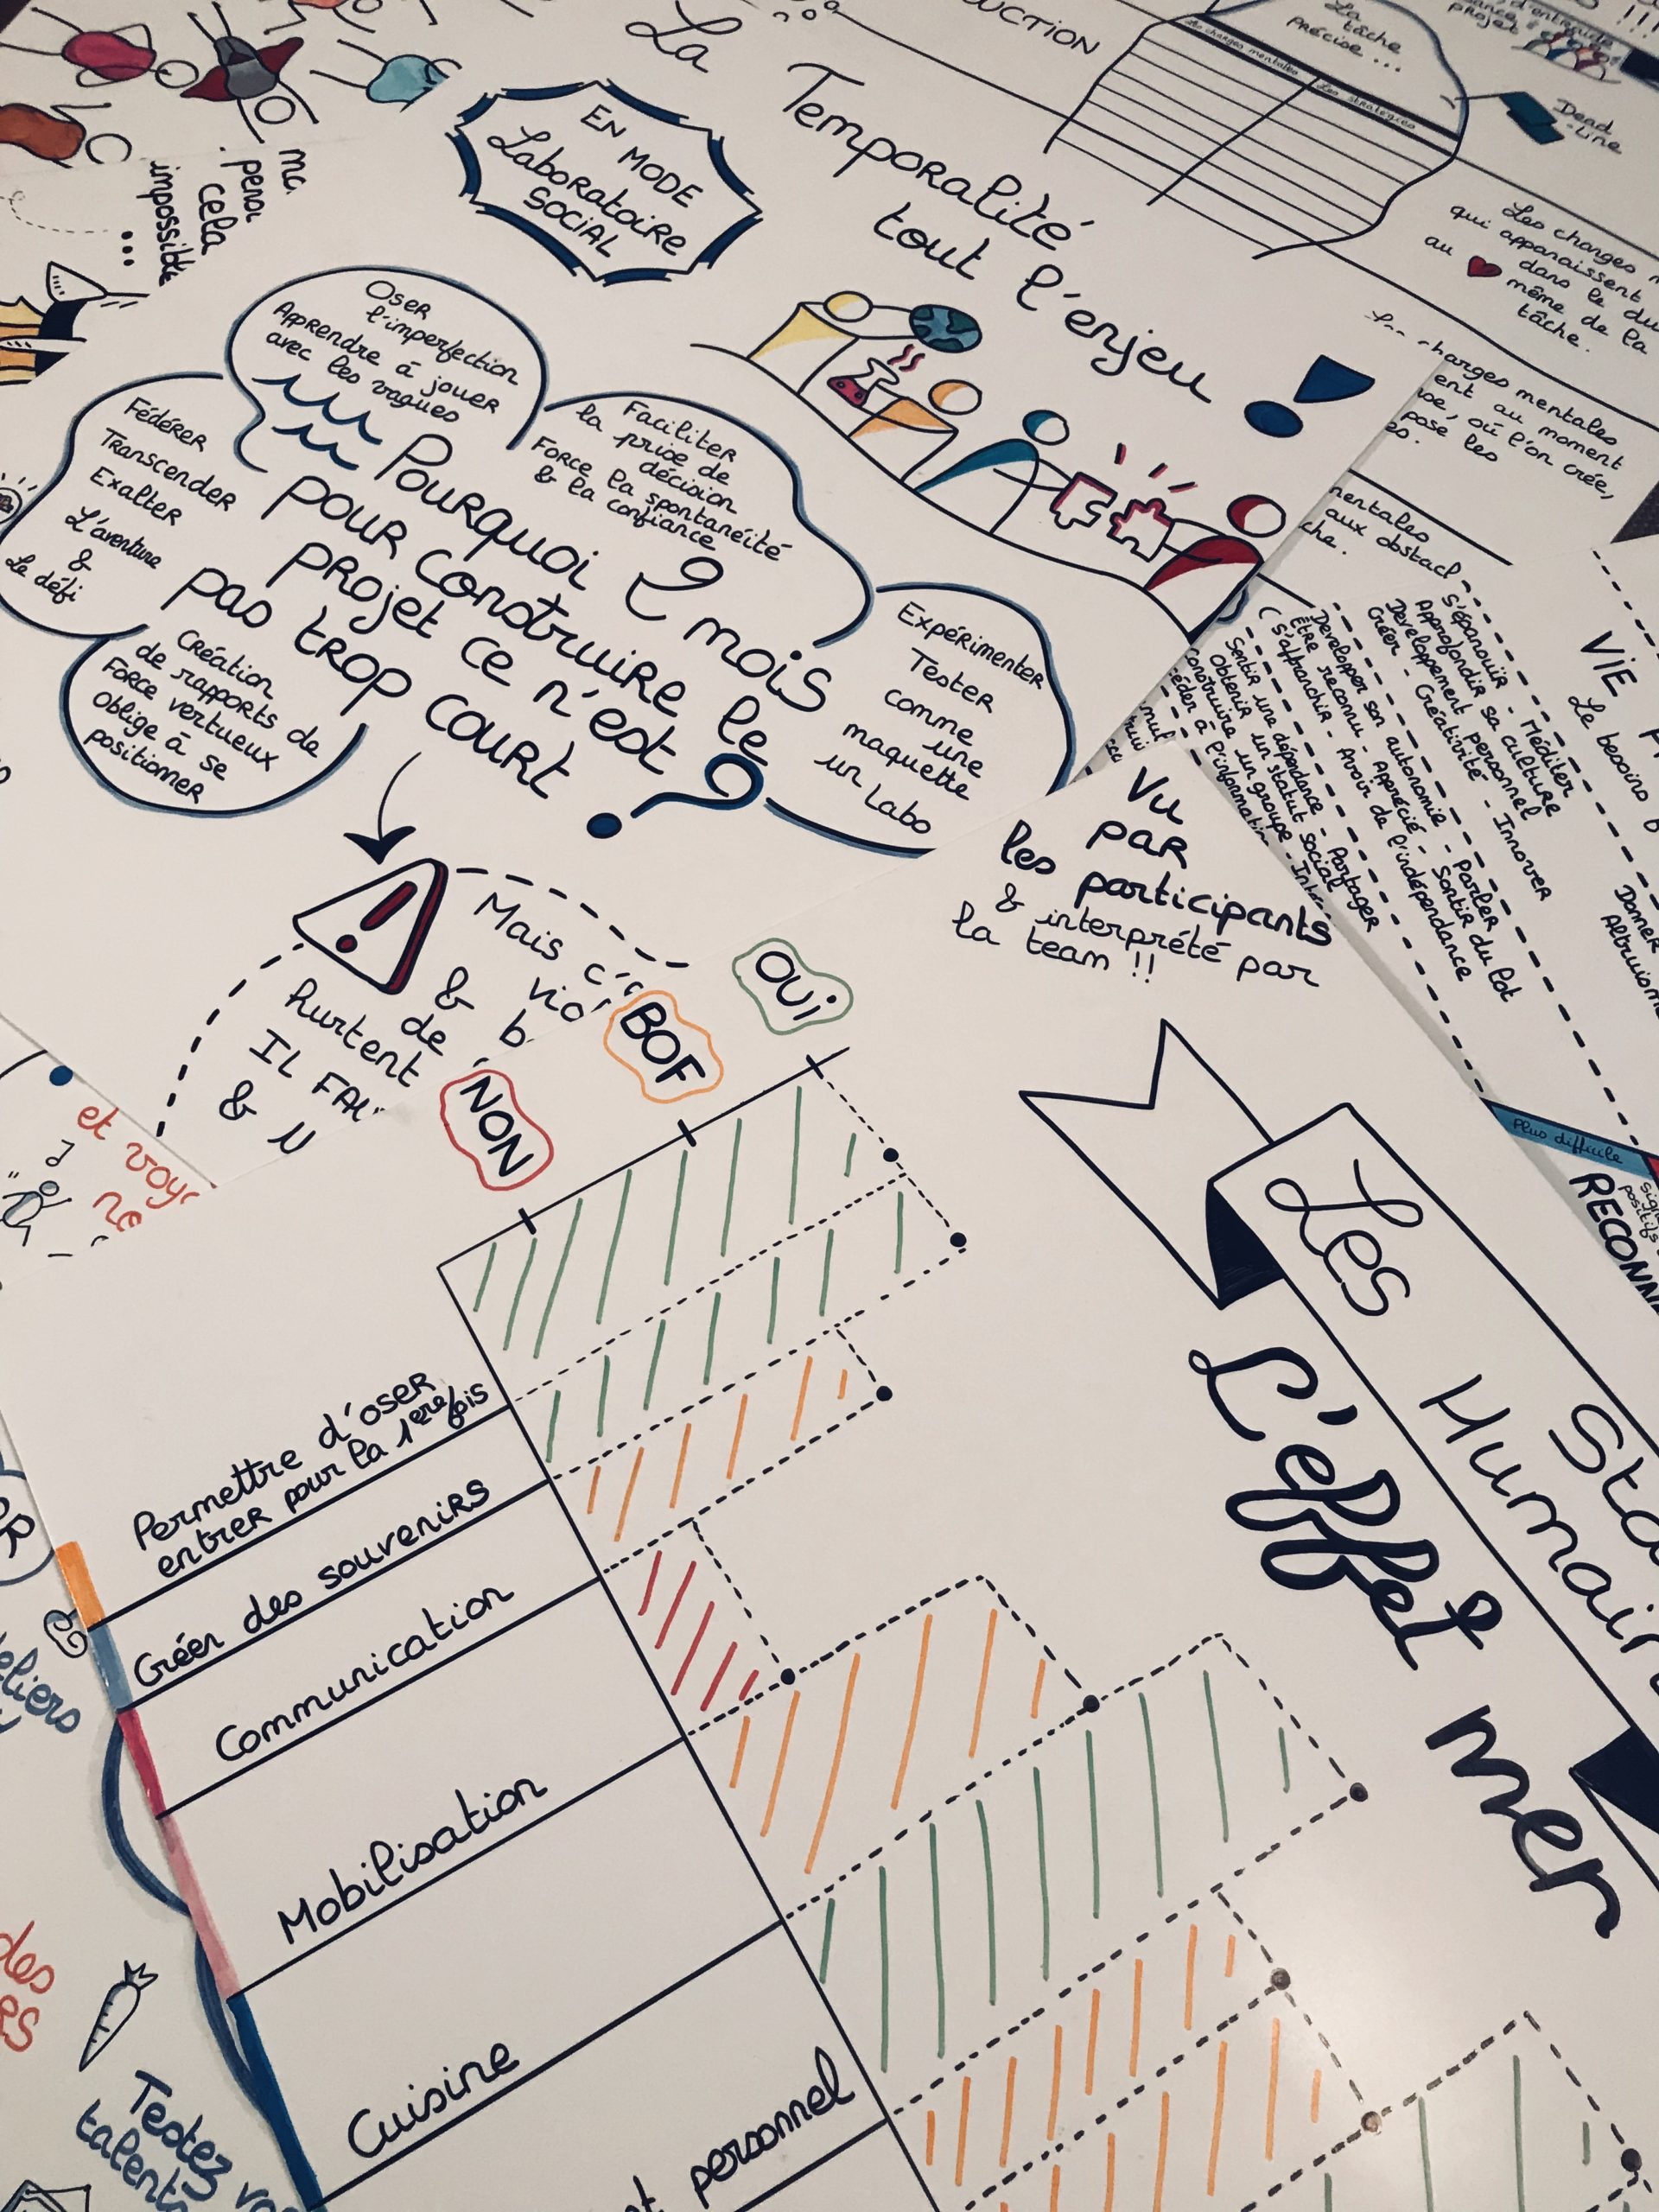 La
Temporalité
tout l'enjeu !
EN MODE
Laboratoire
SOCIAL
UCTION
La
tâche
précise ...
Les charges mentales
Les stratégies
projet
Dead
-Line
Les charges m
qui apparaissent
dans le du
au même de la
tâche.
charges mentales
ent au moment
où l'on crée,
pose les
es.
mentales
aux obstacl
che.
cela
impossible
...
Oser
l'imperfection
Apprendre à jouer
avec les vagues
Fédérer
Transcender
Exalter
L'aventure
&
Le défi
Faciliter
la prise de
décision
Force la spontanéité
& la confiance
Pourquoi 2 mois
pour construire le
projet ce n'est
pas trop court ?
Création
de rapports de
Force vertueux
Oblige à se
positionner
Expérimenter
Tester
comme
une
maquette
un Labo
Mais c'
& vio
de b
hurtent
IL FAU
& N
S'épanouir - Méditer
Approfondir sa culture
Développement personnel
Créer - Créativité - Innover
Développer son autonomie - Parler
Être reconnu - Apprécié - Sortir du lot
(S'affranchir - Avoir de l'indépendance
Sentir une dépendance - Partager
Obtenir un statut social
Construire un groupe - Inter
céder à l'information
VIE
Le besoins
Donner
Altruisme
Plus difficile
signes
positifs
RECONN
Vu
par
les participants
& interprété par
la team !!
NON
BOF
OUI
Permettre d'oser
entrer pour la 1ere fois
Créer des souvenirs
Communication
Mobilisation
Cuisine
t personnel
Les
Sta
Humain
L'effet
mer
et voy
ne
eliers
des
RS
Testez vo
talents